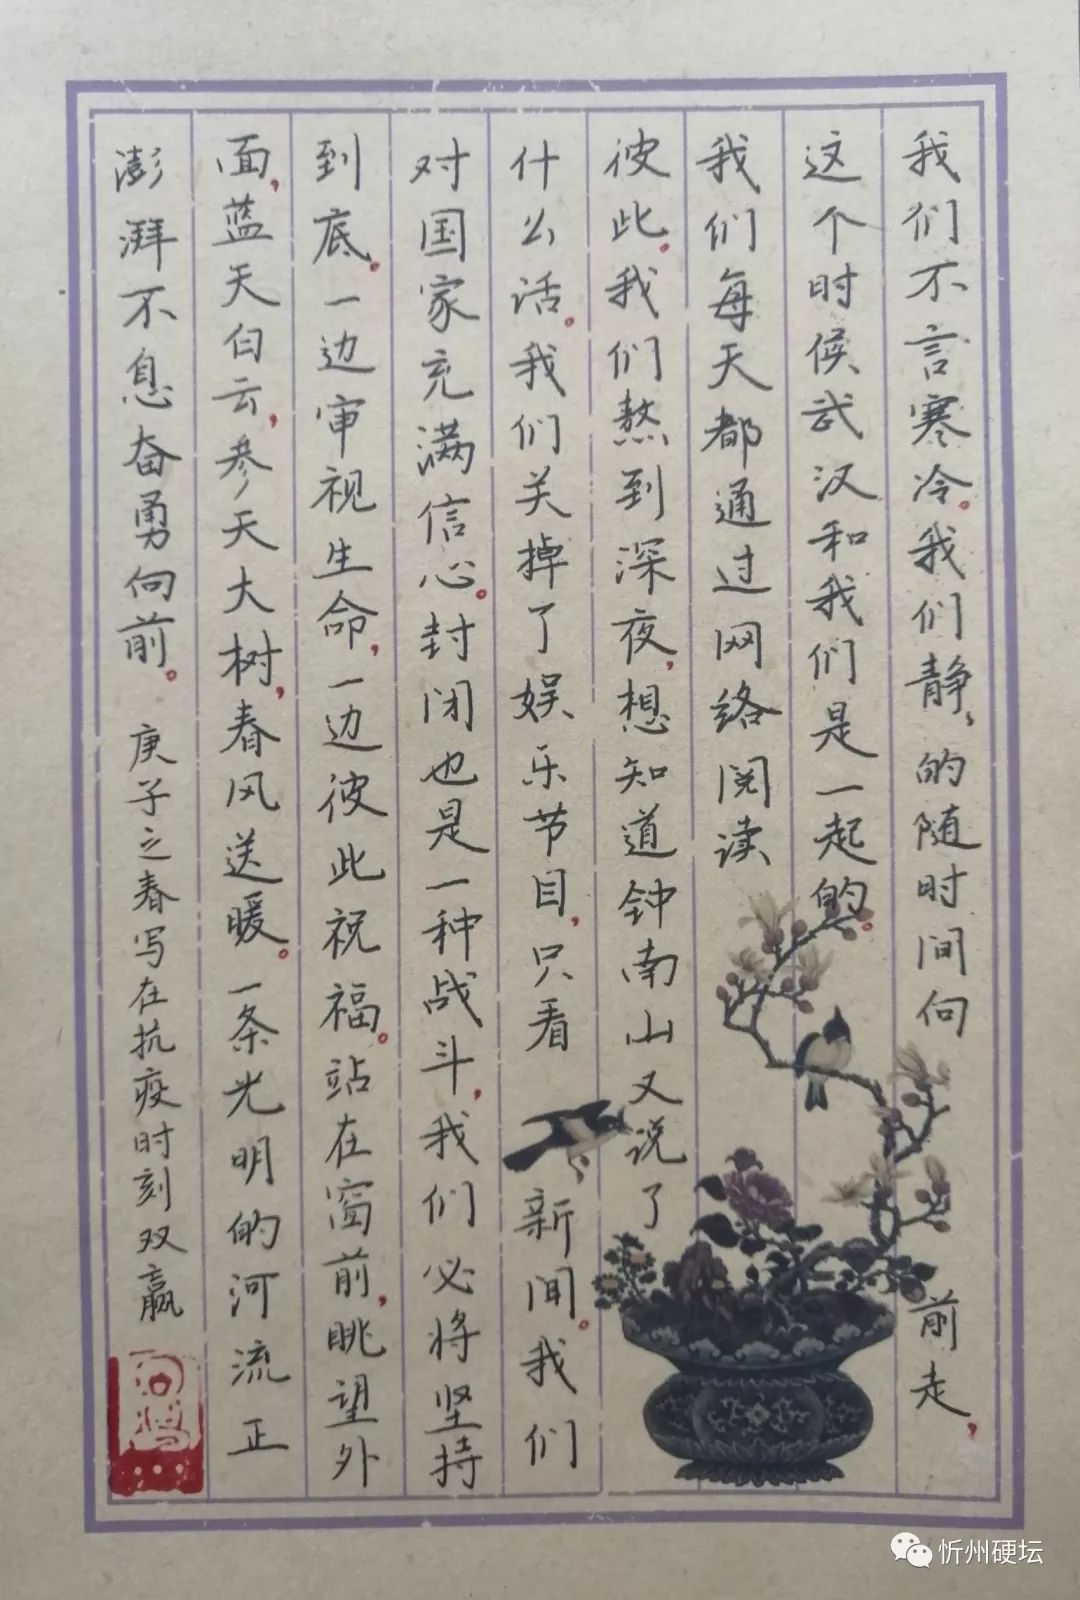 我们不言寒冷。我们静静的随时间向前走，
这个时候武汉和我们是一起的。
我们每天都通过网络阅读
彼此。我们熬到深夜，想知道钟南山又说了
什么话。我们关掉了娱乐节目，只看新闻。我们
对国家充满信心。封闭也是一种战斗，我们必将坚持
到底。一边审视生命，一边彼此祝福。站在窗前，眺望外
面，蓝天白云，参天大树，春风送暖。一条光明的河流正
澎湃不息奋勇向前。 庚子之春写在抗疫时刻双赢
忻州硬坛